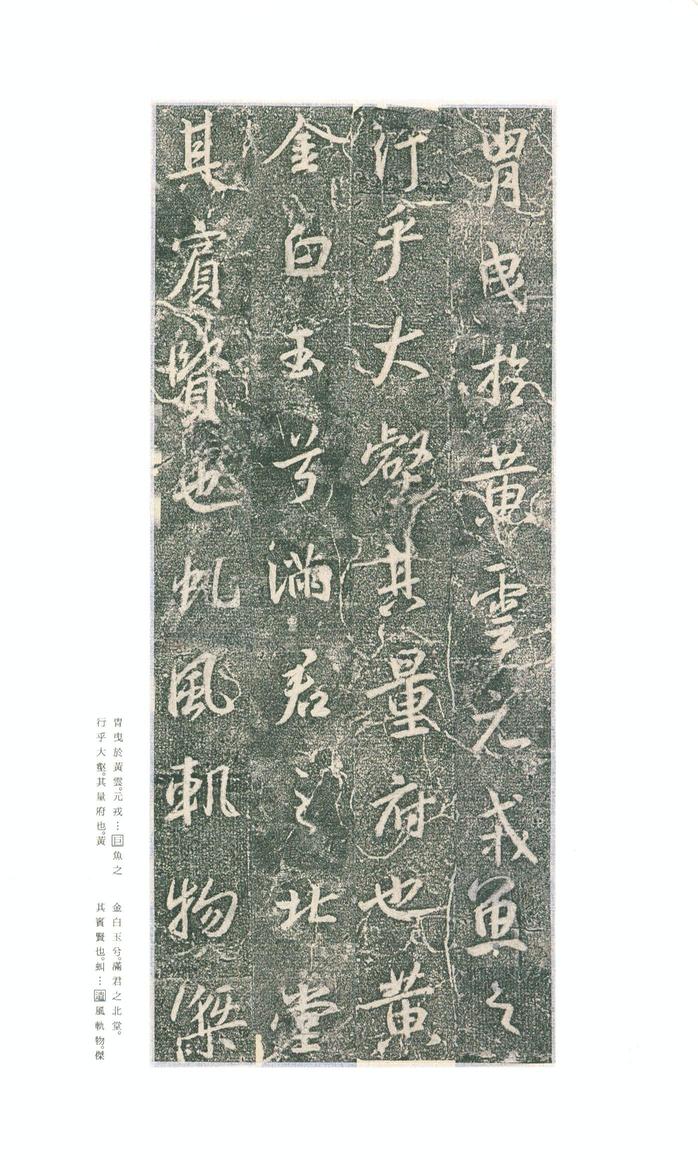 冑曳於黃雲元戎魚之
行乎大壑其量府也黃
金白玉兮滿君之北堂
其賓賢也虬風軌物傑
冑曳於黃雲。元戎…巨魚之
行乎大壑。其量府也。黃
金白玉兮。滿君之北堂。
其賓賢也。虬…遺風軌物。傑